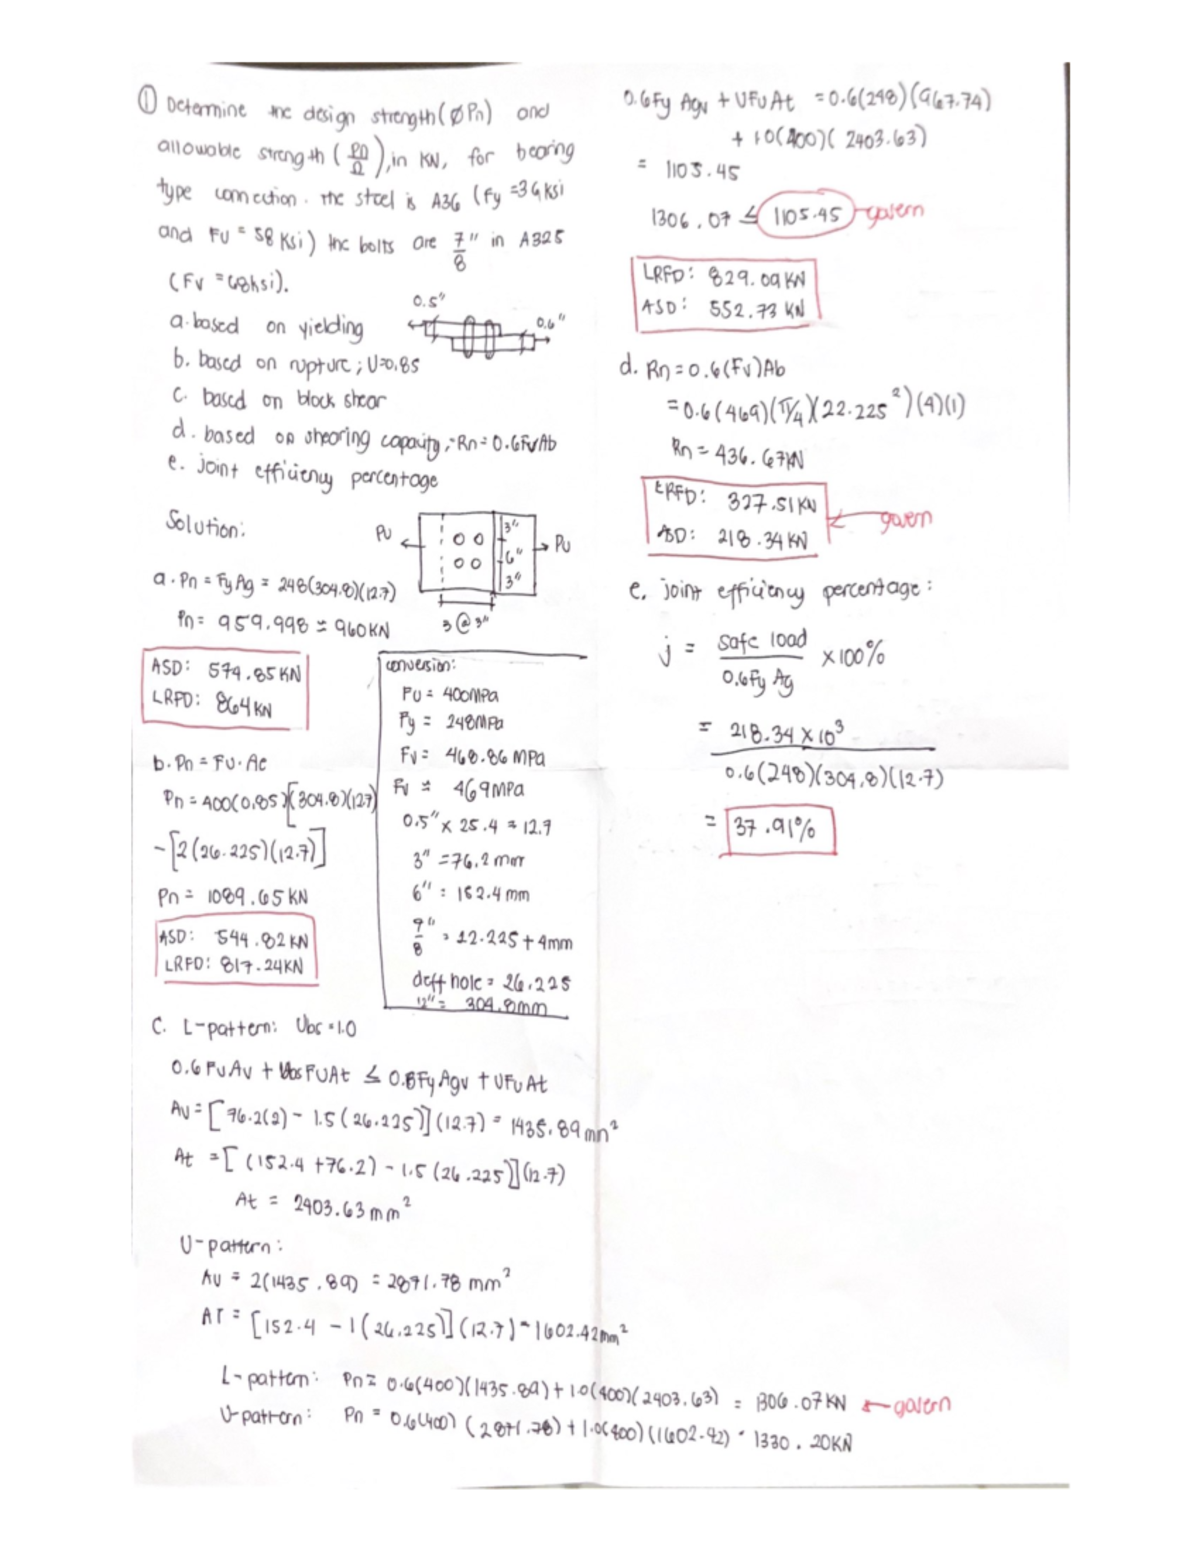 ① Determine the design strength (ØPn) and
allowable strength (Pn/Ω), in KN, for bearing
type connection. The steel is A36 (Fy = 36 ksi
and Fu = 58 Ksi) the bolts are 7/8" in A325
(Fv = 68ksi).
a. based on yielding
b. based on rupture; U=0.85
c. based on block shear
d. based on shearing capacity; Rn = 0.6FvAb
e. joint efficiency percentage
0.5"
0.6"
Solution:
Pu
Pu
3"
6"
3"
3 @ 3"
a. Pn = FyAg = 248(304.8)(12.7)
Pn = 959.998 ≈ 960KN
ASD: 574.85 KN
LRFD: 864 KN
b. Pn = Fu·Ae
Pn = 400(0.85)[304.8)(12.7)
-[2(26.225)(12.7)]
Pn = 1089.65 KN
ASD: 544.82 KN
LRFD: 817.24KN
conversion:
Fu = 400MPa
Fy = 248MPa
Fv = 468.86 MPa
Fv ≈ 469MPa
0.5" x 25.4 = 12.7
3" = 76.2 mm
6" = 152.4 mm
7/8" = 22.225 + 4mm
deff hole = 26.225
12" = 304.8mm
C. L-pattern: Ubs = 1.0
0.6 FuAv + UbsFuAt ≤ 0.6FyAgv + UFuAt
Av = [76.2(2) - 1.5(26.225)](12.7) = 1435.89 mm²
At = [(152.4 + 76.2) - 1.5(26.225)](12.7)
At = 2403.63 mm²
U-pattern:
Av = 2(1435.89) = 2871.78 mm²
At = [152.4 - 1(26.225)](12.7) = 1602.42mm²
L-pattern: Pn = 0.6(400)(1435.89) + 1.0(400)(2403.63) = 1306.07 KN ← govern
U-pattern: Pn = 0.6(400)(2871.78) + 1.0(400)(1602.42) = 1330.20KN
0.6Fy Agv + UFuAt = 0.6(248)(967.74)
+ 1.0(400)(2403.63)
= 1105.45
1306.07 ≤ 1105.45 govern
LRFD: 829.09 KN
ASD: 552.73 KN
d. Rn = 0.6(Fv)Ab
= 0.6(469)(π/4)(22.225²)(4)(1)
Rn = 436.67KN
LRFD: 327.51 KN
ASD: 218.34 KN
← govern
e. joint efficiency percentage:
j = safe load / 0.6Fy Ag x100%
= 218.34 x 10³ / 0.6(248)(304.8)(12.7)
= 37.91%